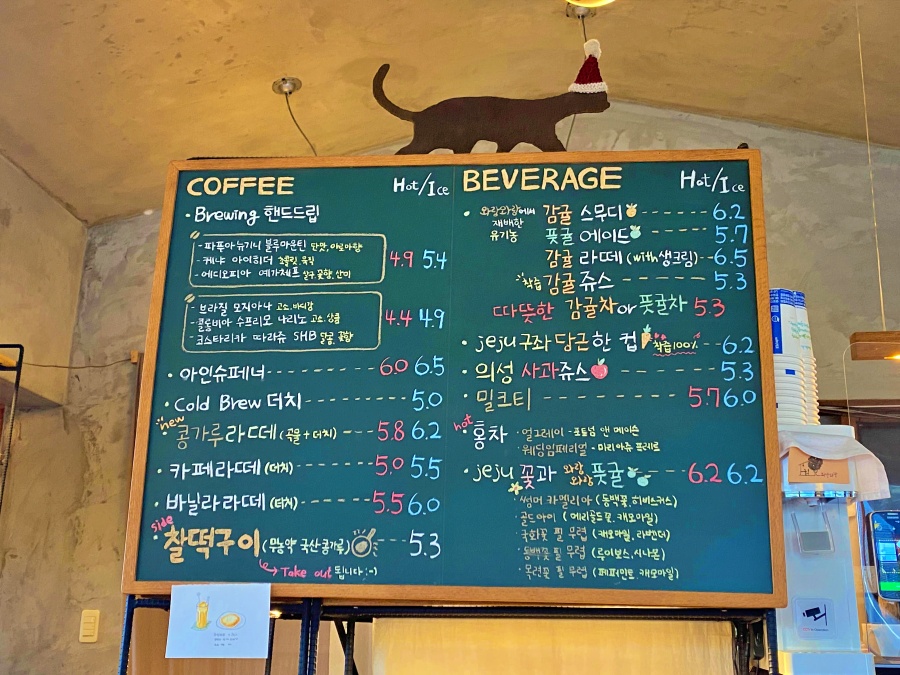 COFFEE Hot/Ice
· Brewing 핸드드립
- 파푸아뉴기니 블루마운틴 단맛, 아로마향
- 케냐 아이히더 초콜릿, 묵직
- 에디오피아 예가체프 살구, 꽃향, 산미
4.9 5.4
- 브라질 모지아나 고소, 바디감
- 콜롬비아 수프리모 나리뇨 고소, 상큼
- 코스타리카 따라쥬 SHB 달콤, 꽃향
4.4 4.9
· 아인슈페너 6.0 6.5
· Cold Brew 더치 5.0
new
· 콩가루라떼 (곡물+더치) 5.8 6.2
· 카페라떼 (더치) 5.0 5.5
· 바닐라라떼 (더치) 5.5 6.0
side
· 찰떡구이 (무농약 국산콩가루) 5.3
Take out 됩니다 :-)
BEVERAGE Hot/Ice
· 와랑와랑에서 재배한 유기농
감귤 스무디 6.2
풋귤 에이드 5.7
감귤 라떼 (with 생크림) 6.5
착즙 감귤 쥬스 5.3
따뜻한 감귤차 or 풋귤차 5.3
· jeju 구좌 당근 한 컵 착즙 100% 6.2
· 의성 사과쥬스 5.3
· 밀크티 5.7 6.0
hot
· 홍차 · 얼그레이 - 포트넘 앤 메이슨
· 웨딩임페리얼 - 마리아쥬 프레르
· jeju 꽃과 와랑와랑 풋귤 6.2 6.2
· 썸머 카멜리아 (동백꽃, 히비스커스)
· 골드아이 (메리골드꽃, 캐모마일)
· 국화꽃 필 무렵 (캐모마일, 라벤더)
· 동백꽃 필 무렵 (루이보스, 시나몬)
· 목련꽃 필 무렵 (페퍼민트, 캐모마일)